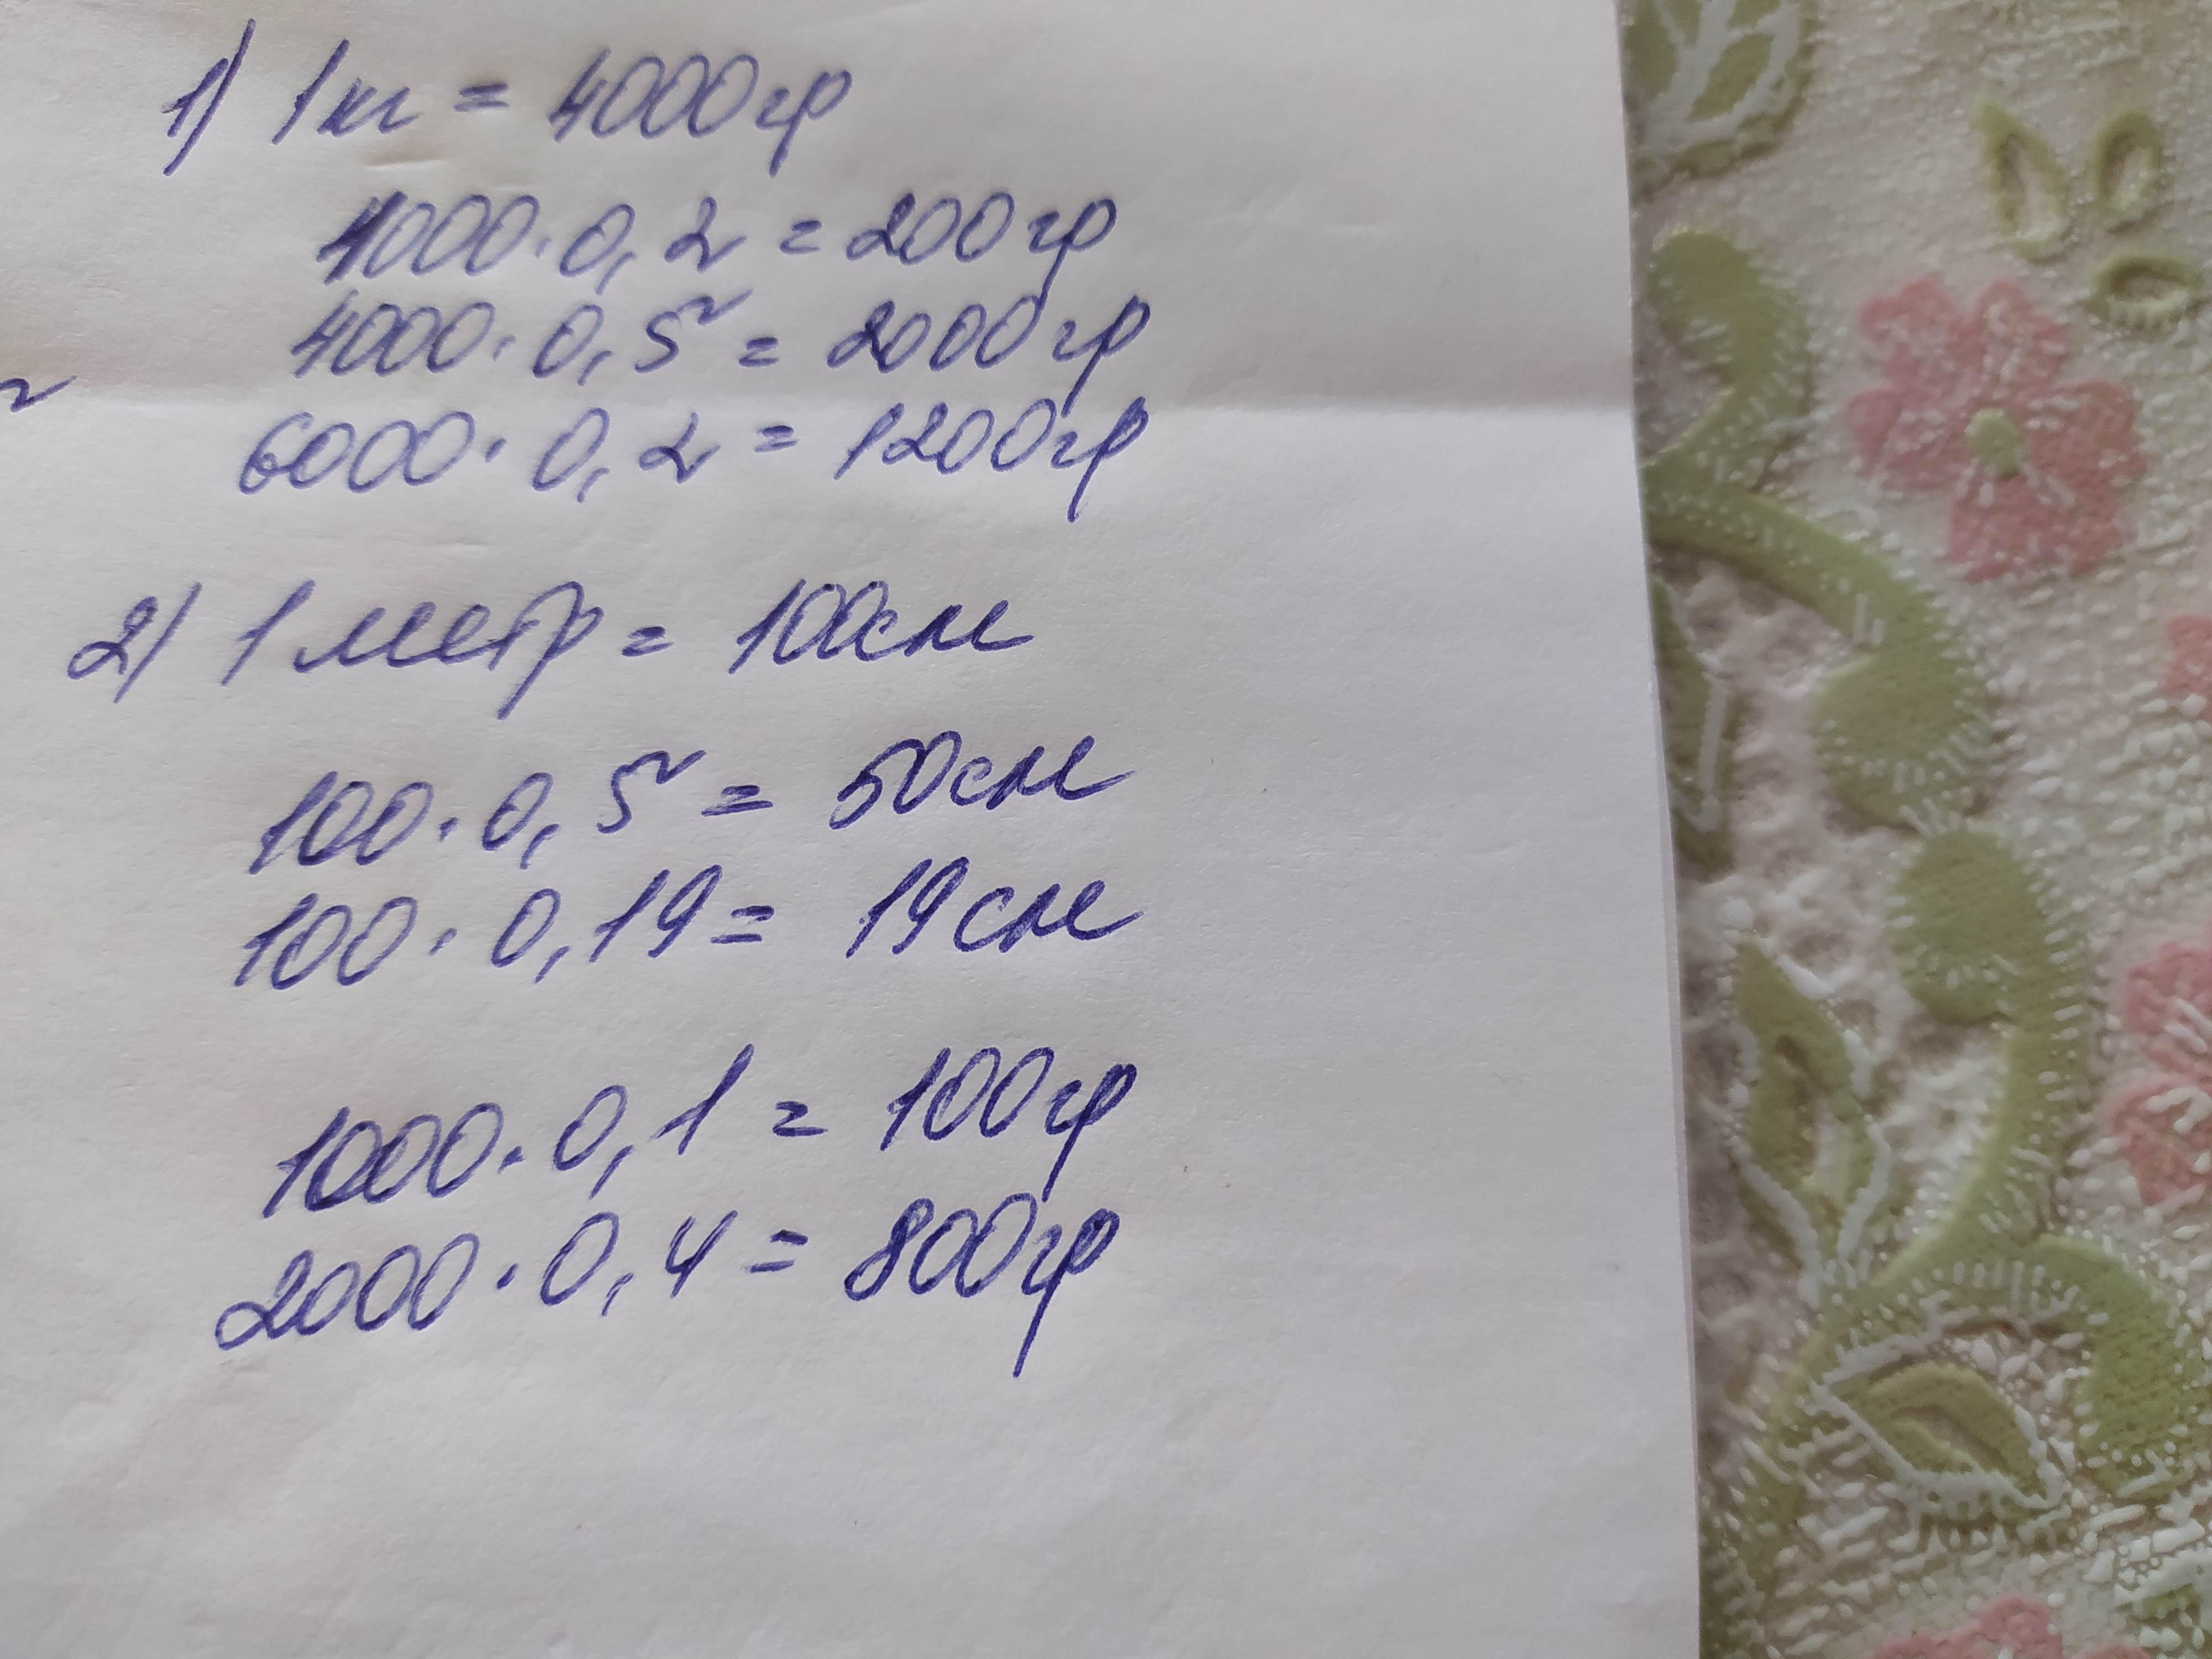 1) 1кг = 4000гр
1000·0,2 = 200гр
4000·0,5 = 2000гр
6000·0,2 = 1200гр
2) 1 метр = 100см
100·0,5 = 50см
100·0,19 = 19см
1000·0,1 = 100гр
2000·0,4 = 800гр